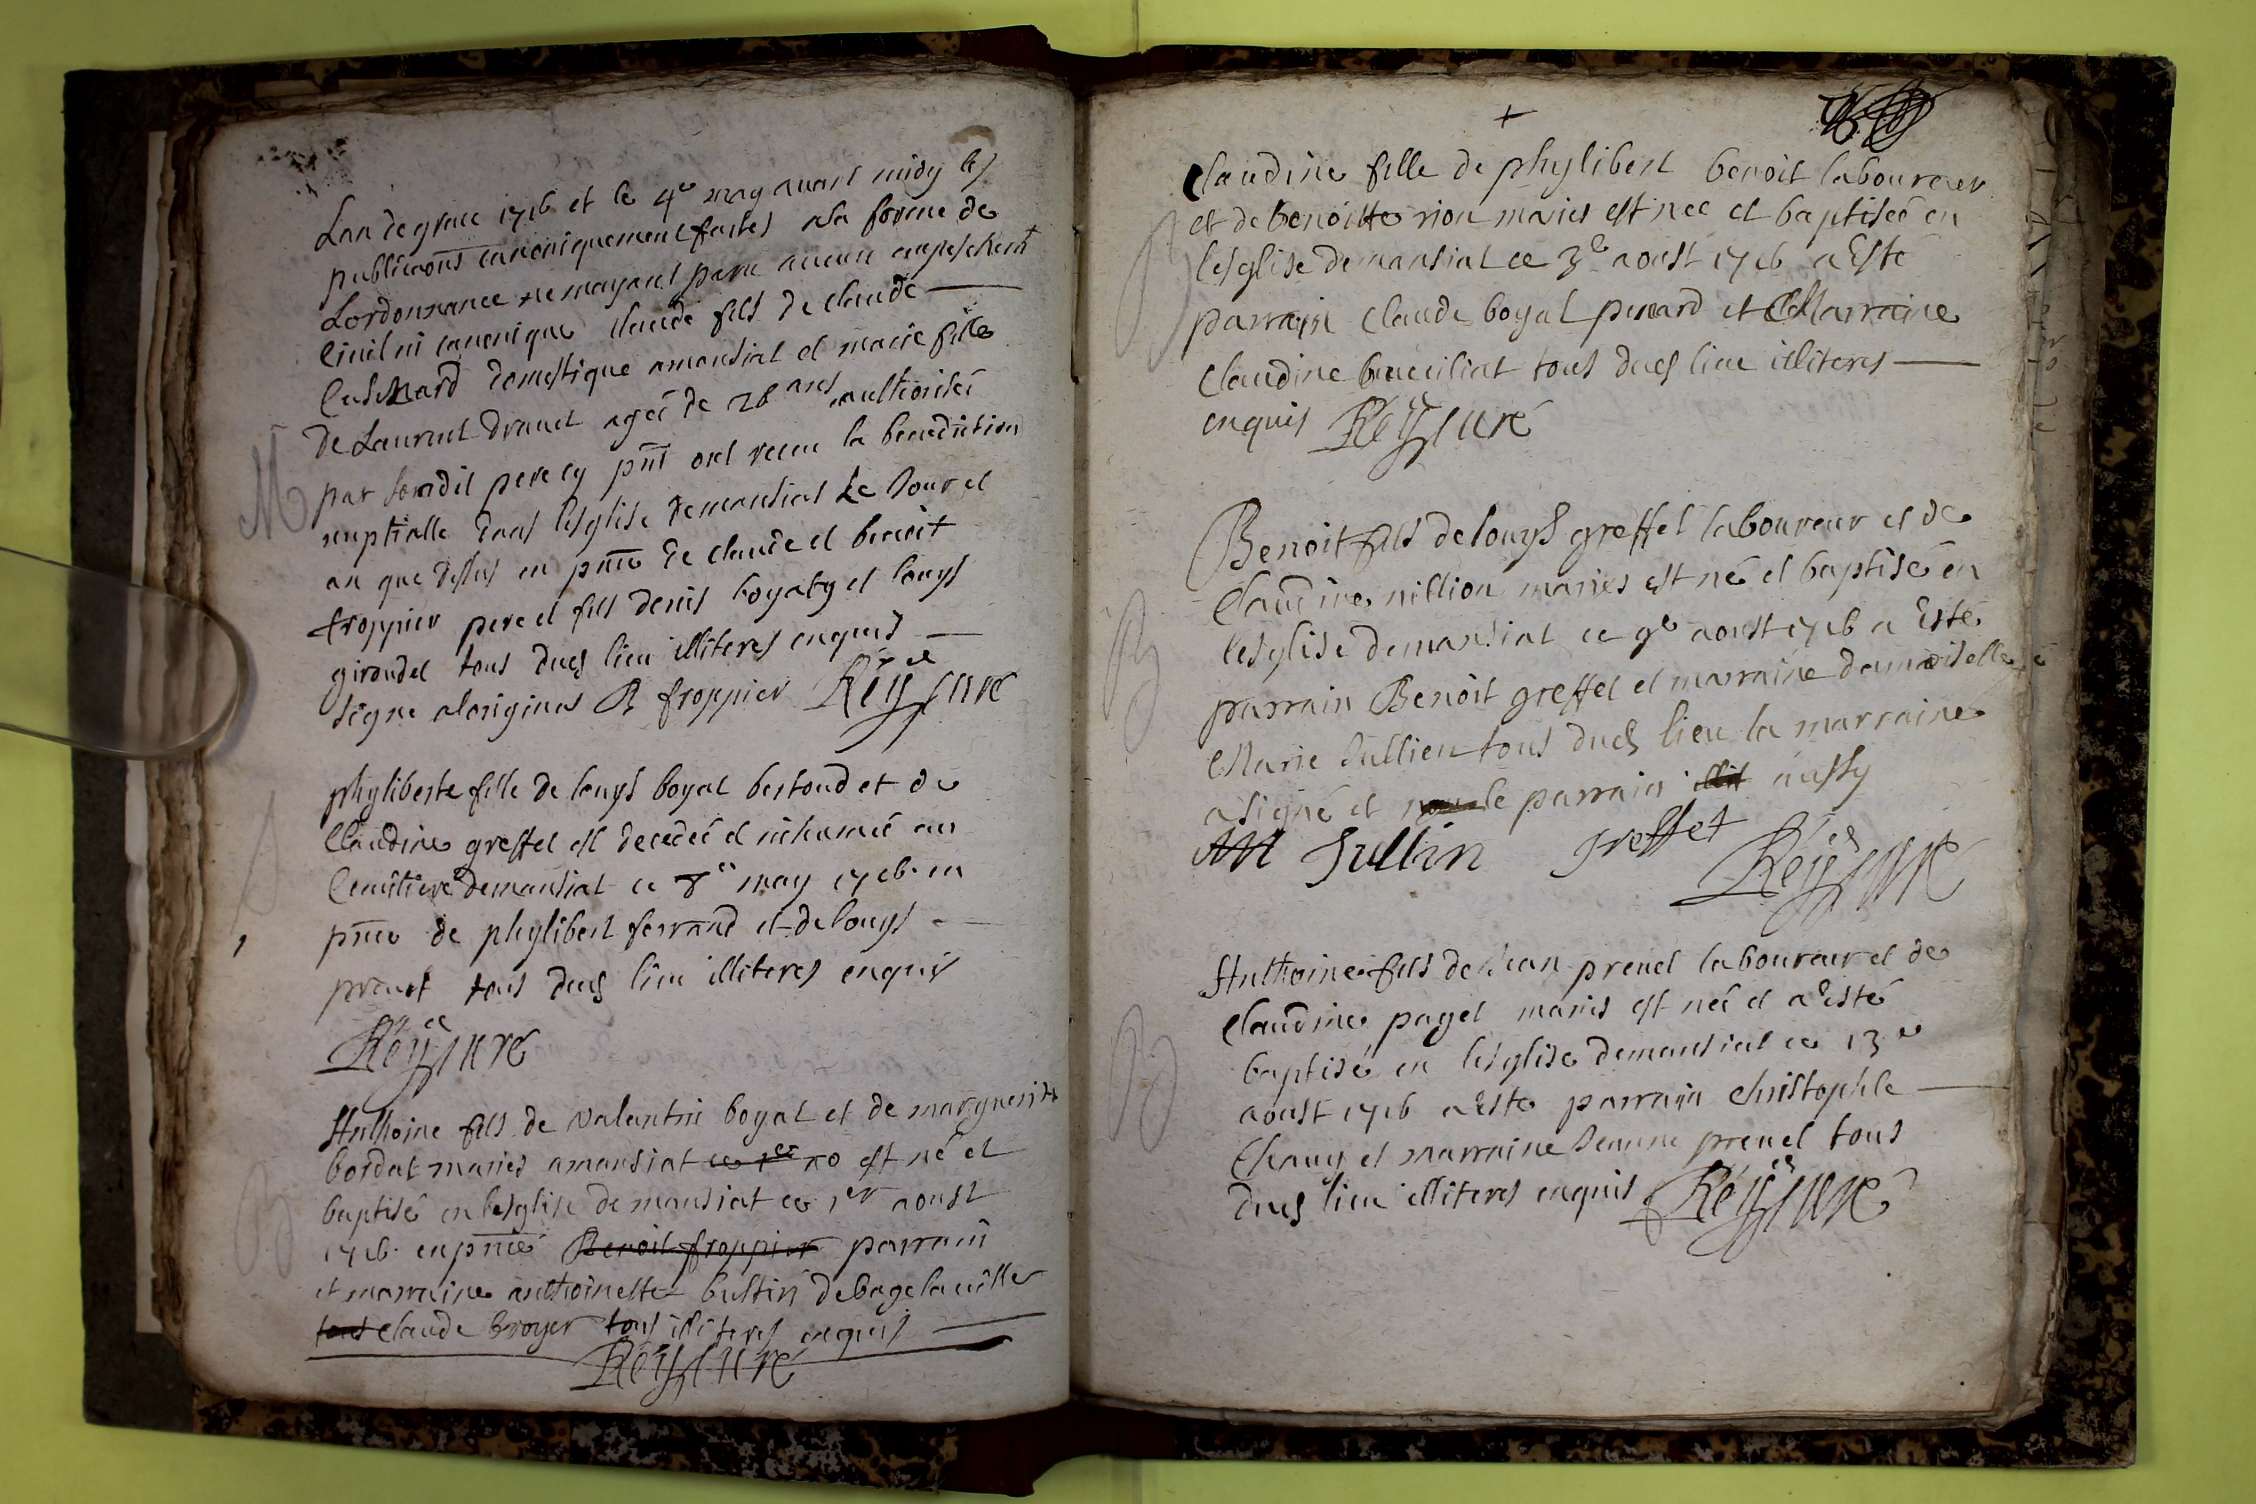 Lan de grace 1716 et le 4e may avant midy les
publicaons canoniquement faites a la forme de
Lordonnance ne mayant paru aucun empeschemt
Civil ni canonique Claude fils de Claude
domestique a mansiat et marie fille
De Laurent Drauet agée de 26 ans authorisée
par sondit pere cy pnt ont receu la benediction
nuptialle dans lesglise de mansiat Le Jour et
an que dessus en pnce de claude et benoit
froppier pere et fils denis boyat et louys
girondel tous duds lieu illiteres enquis
signe aloriginal B froppier Réÿ curé
M
phyliberte fille de louys boyat bertoud et de
Claudine greffet est decedeé et inhumeé au
Cemitiere demansiat ce 8e may 1716 en
pnce de phylibert ferrand et de louys
prenet tous duds lieu illiteres enquis
Réÿ curé
Anthoine fils de valentin boyat et de marguerite
bordat maries amansiat est né et
baptisé en lesglise de mansiat ce 1er aoust
1716 en pnce Benoit froppier parrain
et marraine anthoinette bustin de bage la ville
tous claude broyer tous illiteres enquis
Réÿ curé
B
Claudine fille de phylibert benoit laboureur
et de benoitte rion maries est neé et baptiseé en
lesglise demansiat ce 3e aoust 1716 a Esté
parrain Claude boyat penard et Marraine
Claudine tous duds lieu illiteres
enquis Réÿ curé
B
Benoit fils de louys greffet laboureur et de
Claudine nillion maries est né et baptisé en
lesglise demansiat ce 9e aoust 1716 a Esté
parrain Benoit greffet et marraine damoiselle
Marie Jullien tous duds lieu la marraine
a signé et le parrain aussy
M Jullin greffet Réÿ curé
B
Anthoine fils de Jean prenel laboureur et de
Claudine paget maries est né et a esté
baptisé en lesglise demansiat ce 13e
aoust 1716 a Esté parrain christophle
Chavy et marraine Jeanne prenel tous
duds lieu illiteres enquis Réÿ curé
B